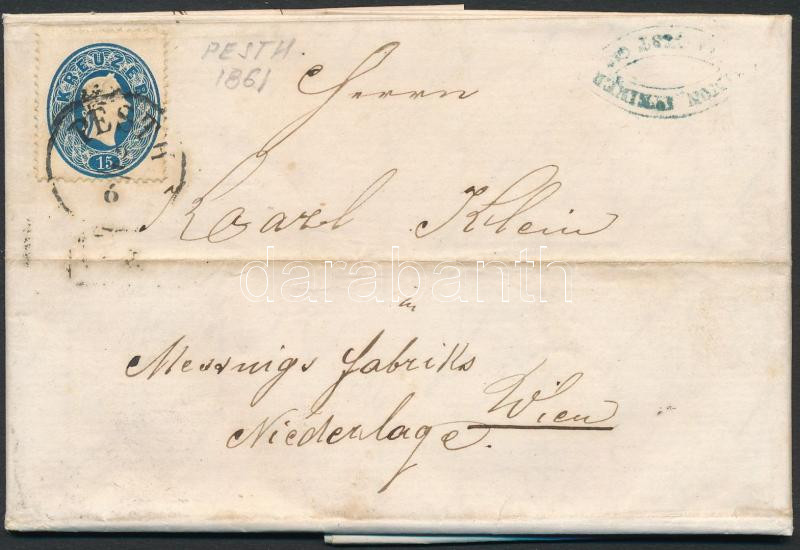 KREUZER
15
PESTH
2
6
PESTH
1861
Herrn
Karl Klein
in
Messnigs fabriks
Niederlage. Wien
darabanth